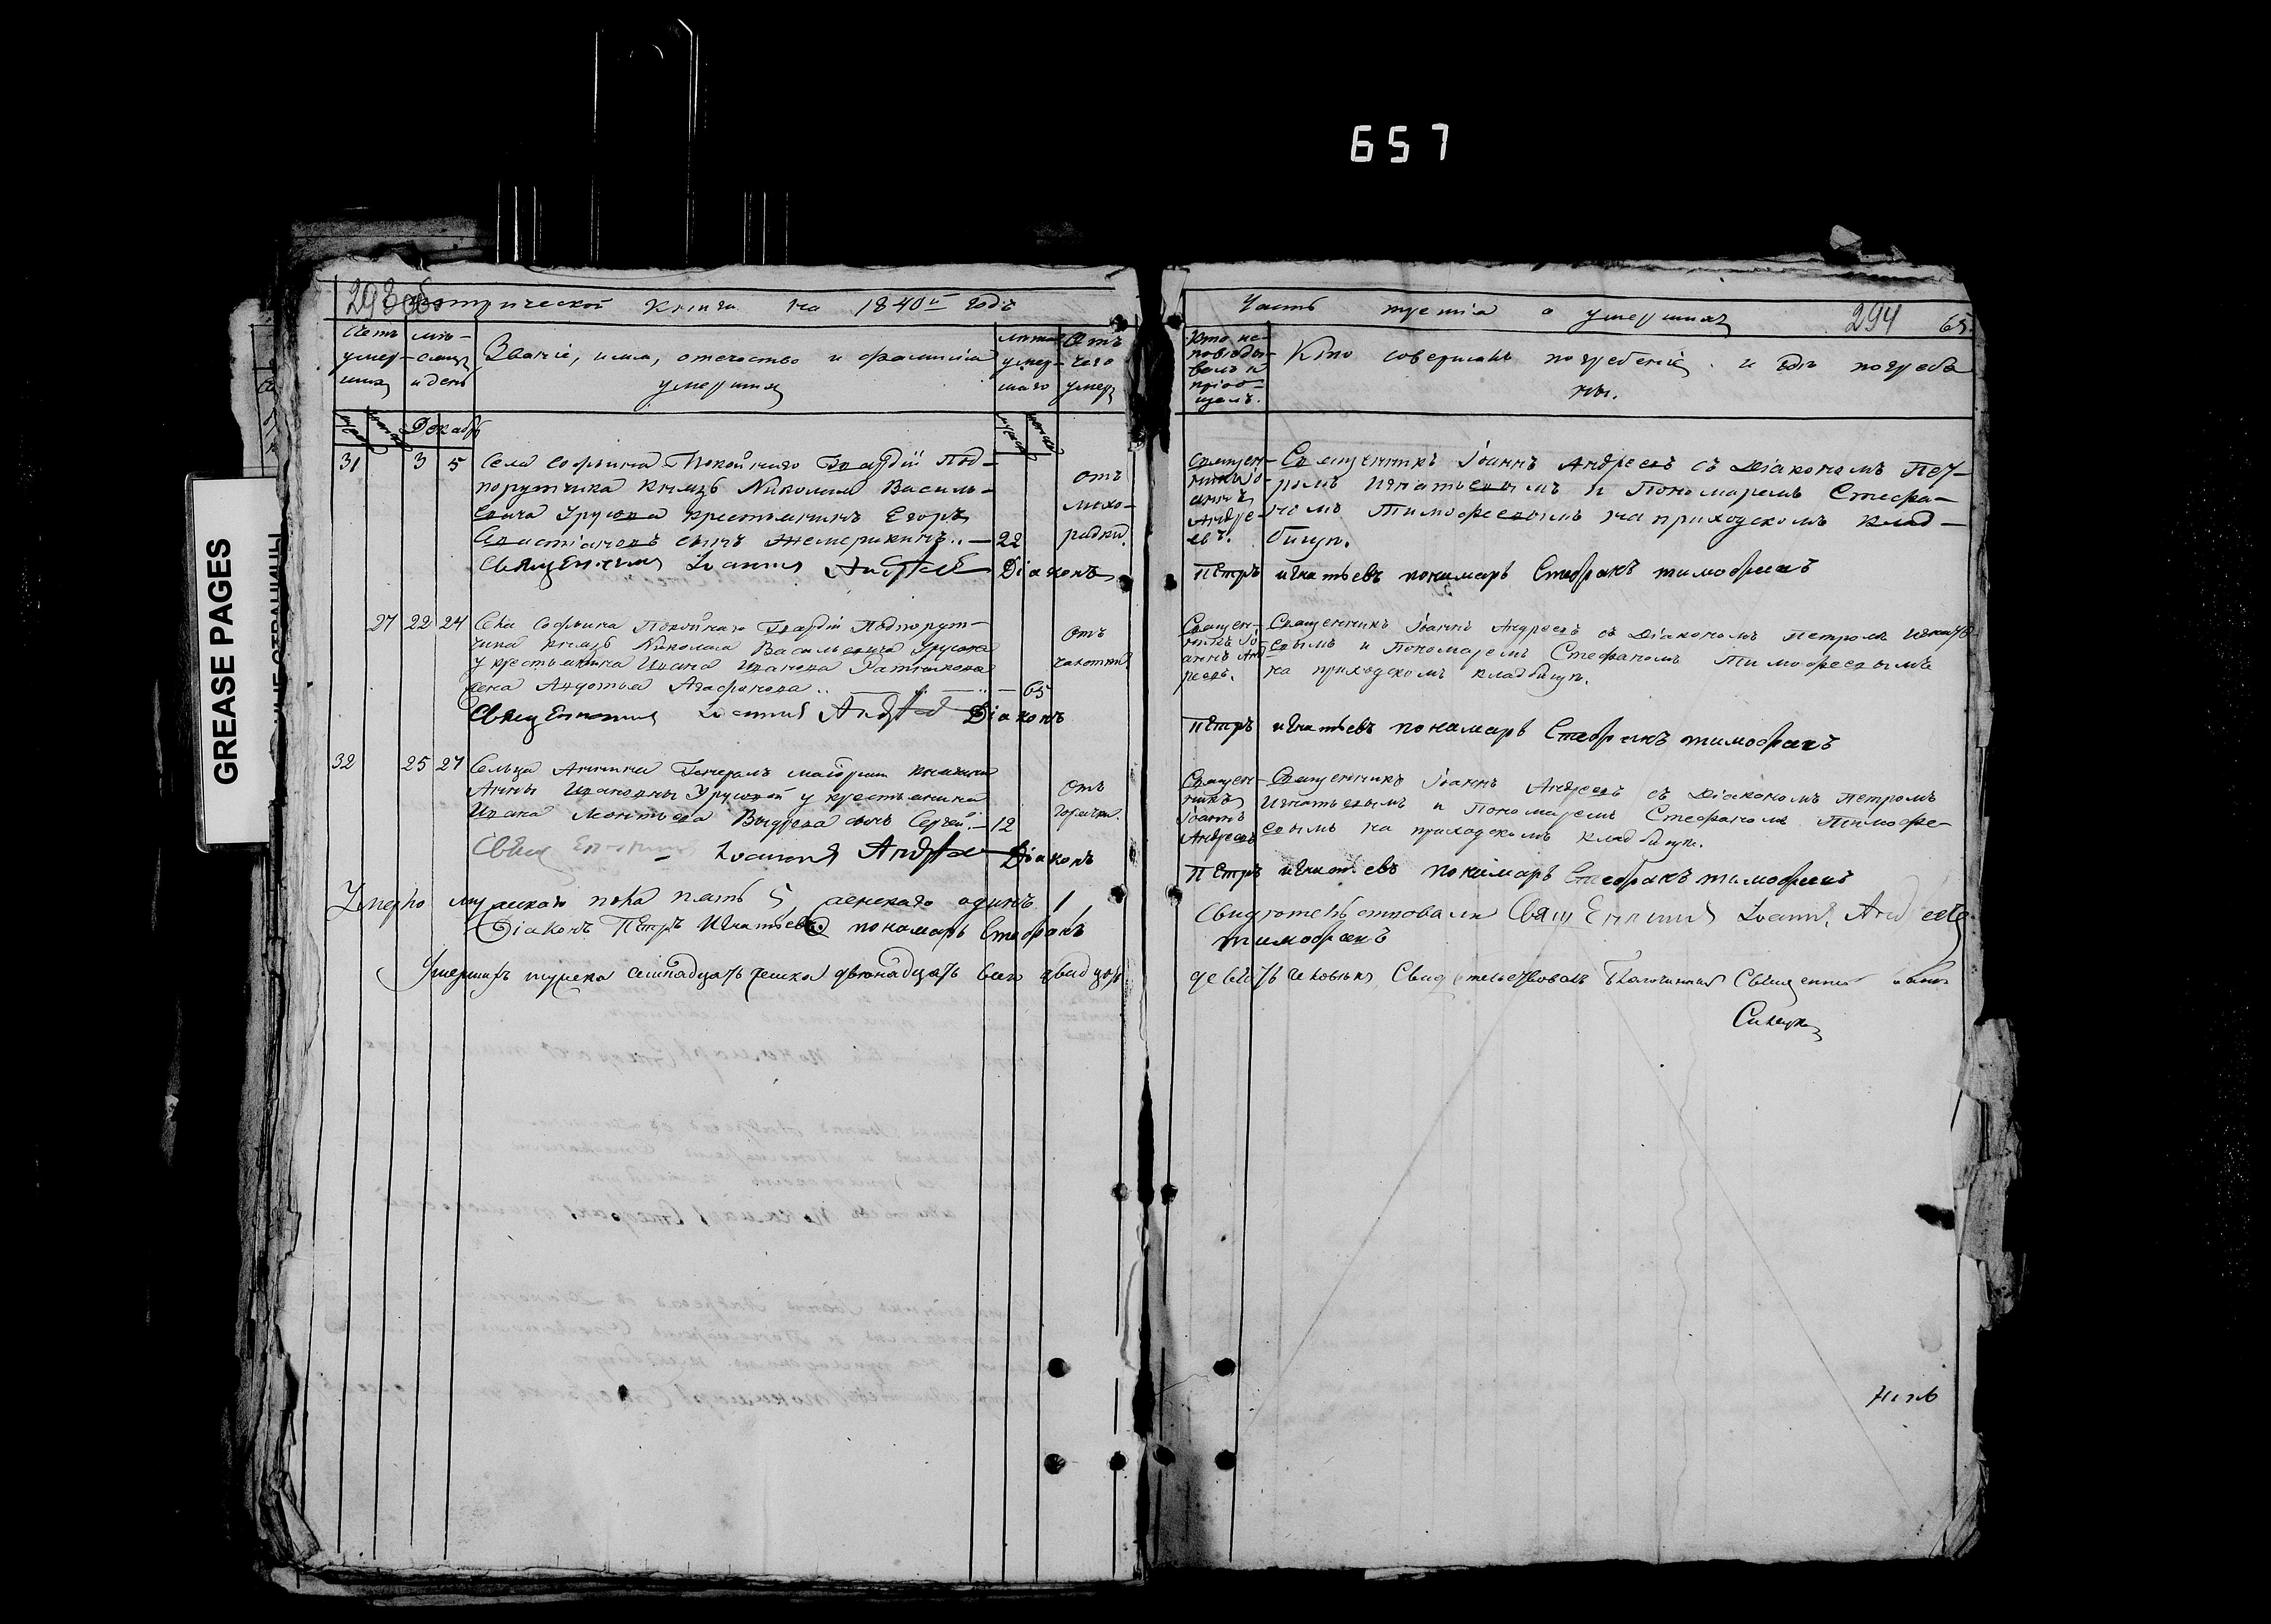 657
GREASE PAGES
293 об
Метрической книги на 1840й годъ
Счетъ умер-шихъ
мѣ-сяцъ и день
Званіе, имя, отечество и фамилія
умершихъ
лѣта умер-шаго
Отъ чего умеръ
Декабрь
31 3 5 Села Софьина Покойнаго Гвардіи Под-
порутчика князь Николая Василь-
евича Урусова крестьянинъ Егоръ
Севастіановъ сынъ Жемерикинъ.. — 22
отъ
лихо-
радки.
Священникъ Іоаннъ Андреевъ Діаконъ
27 22 24 Села Софьина Покойнаго Гвардіи Подпорут-
чика князь Николая Васильевича Урусова
у крестьянина Ивана Иванова
жена Авдотья Агафонова.. — 65
отъ
чахотки
Священникъ Іоаннъ Андреевъ Діаконъ
32 25 27 Сельца Аннина Генералъ маіорши княгини
Анны Ивановны Урусовой у крестьянина
Ивана Леонтьева сынъ Сергей — 12
отъ
горячки.
Священникъ Іоаннъ Андреевъ Діаконъ
Умерло мужескаго пола пять 5, женскаго одинъ 1
Діаконъ Петръ Игнатьевъ пономарь Стефанъ
Умершихъ мужеска семнадцать женска двенадцать всего двадцать
Часть третіа о умершихъ
294
65.
Кто ис-
поведы-
валъ и
пріоб-
щалъ.
Кто совершалъ погребеніе и гдѣ погребе
ны.
Священ-
никъ Іо-
аннъ
Андре-
евъ.
Священникъ Іоаннъ Андреевъ съ Діакономъ Пет-
ромъ Игнатьевымъ и Пономаремъ Стефа-
номъ Тимофеевымъ на приходскомъ клад-
бищѣ.
Петръ Игнатьевъ пономарь Стефанъ тимофеевъ
Священ-
никъ Іо-
аннъ Анд-
реевъ.
Священникъ Іоаннъ Андреевъ съ Діакономъ Петромъ Игнать-
евымъ и Пономаремъ Стефаномъ Тимофеевымъ
на приходскомъ кладбищѣ.
Петръ игнатьевъ пономарь Стефанъ тимофеевъ
Священ-
никъ
Іоаннъ
Андреевъ
Священникъ Іоаннъ Андреевъ съ Діакономъ Петромъ
Игнатьевымъ и Пономаремъ Стефаномъ Тимофе-
евымъ на приходскомъ кладбищѣ.
Петръ игнатьевъ пономарь Стефанъ тимофеевъ
Свидѣтельствовали Священникъ Іоаннъ Андреевъ
тимофеевъ
девять человѣкъ Свидетельствовалъ Благочинный Священникъ